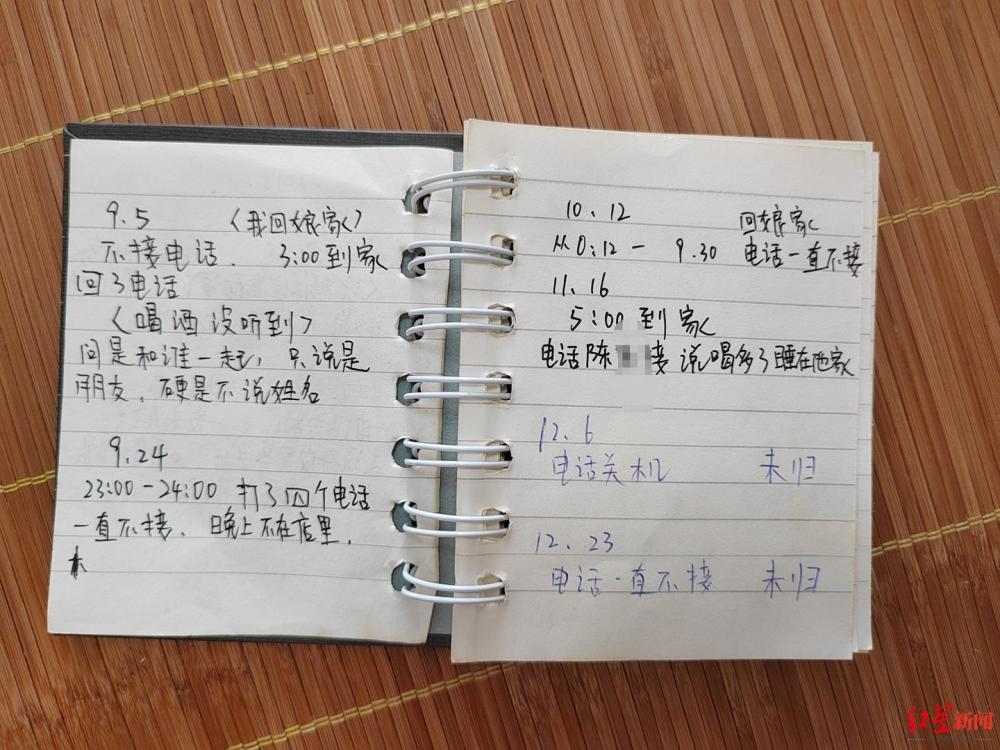 9.5 〈我回娘家〉
不接电话. 3:00到家
回了电话
〈喝酒没听到〉
问是和谁一起, 只说是
朋友, 硬是不说姓名
9.24
23:00-24:00 打了四个电话
一直不接、晚上不在店里,
10、12 回娘家
从0:12- 9.30 电话一直不接
11、16
5:00 到家
电话陈 接 说喝多了睡在他家
12.6
电话关机 未归
12、23
电话一直不接 未归
红星新闻